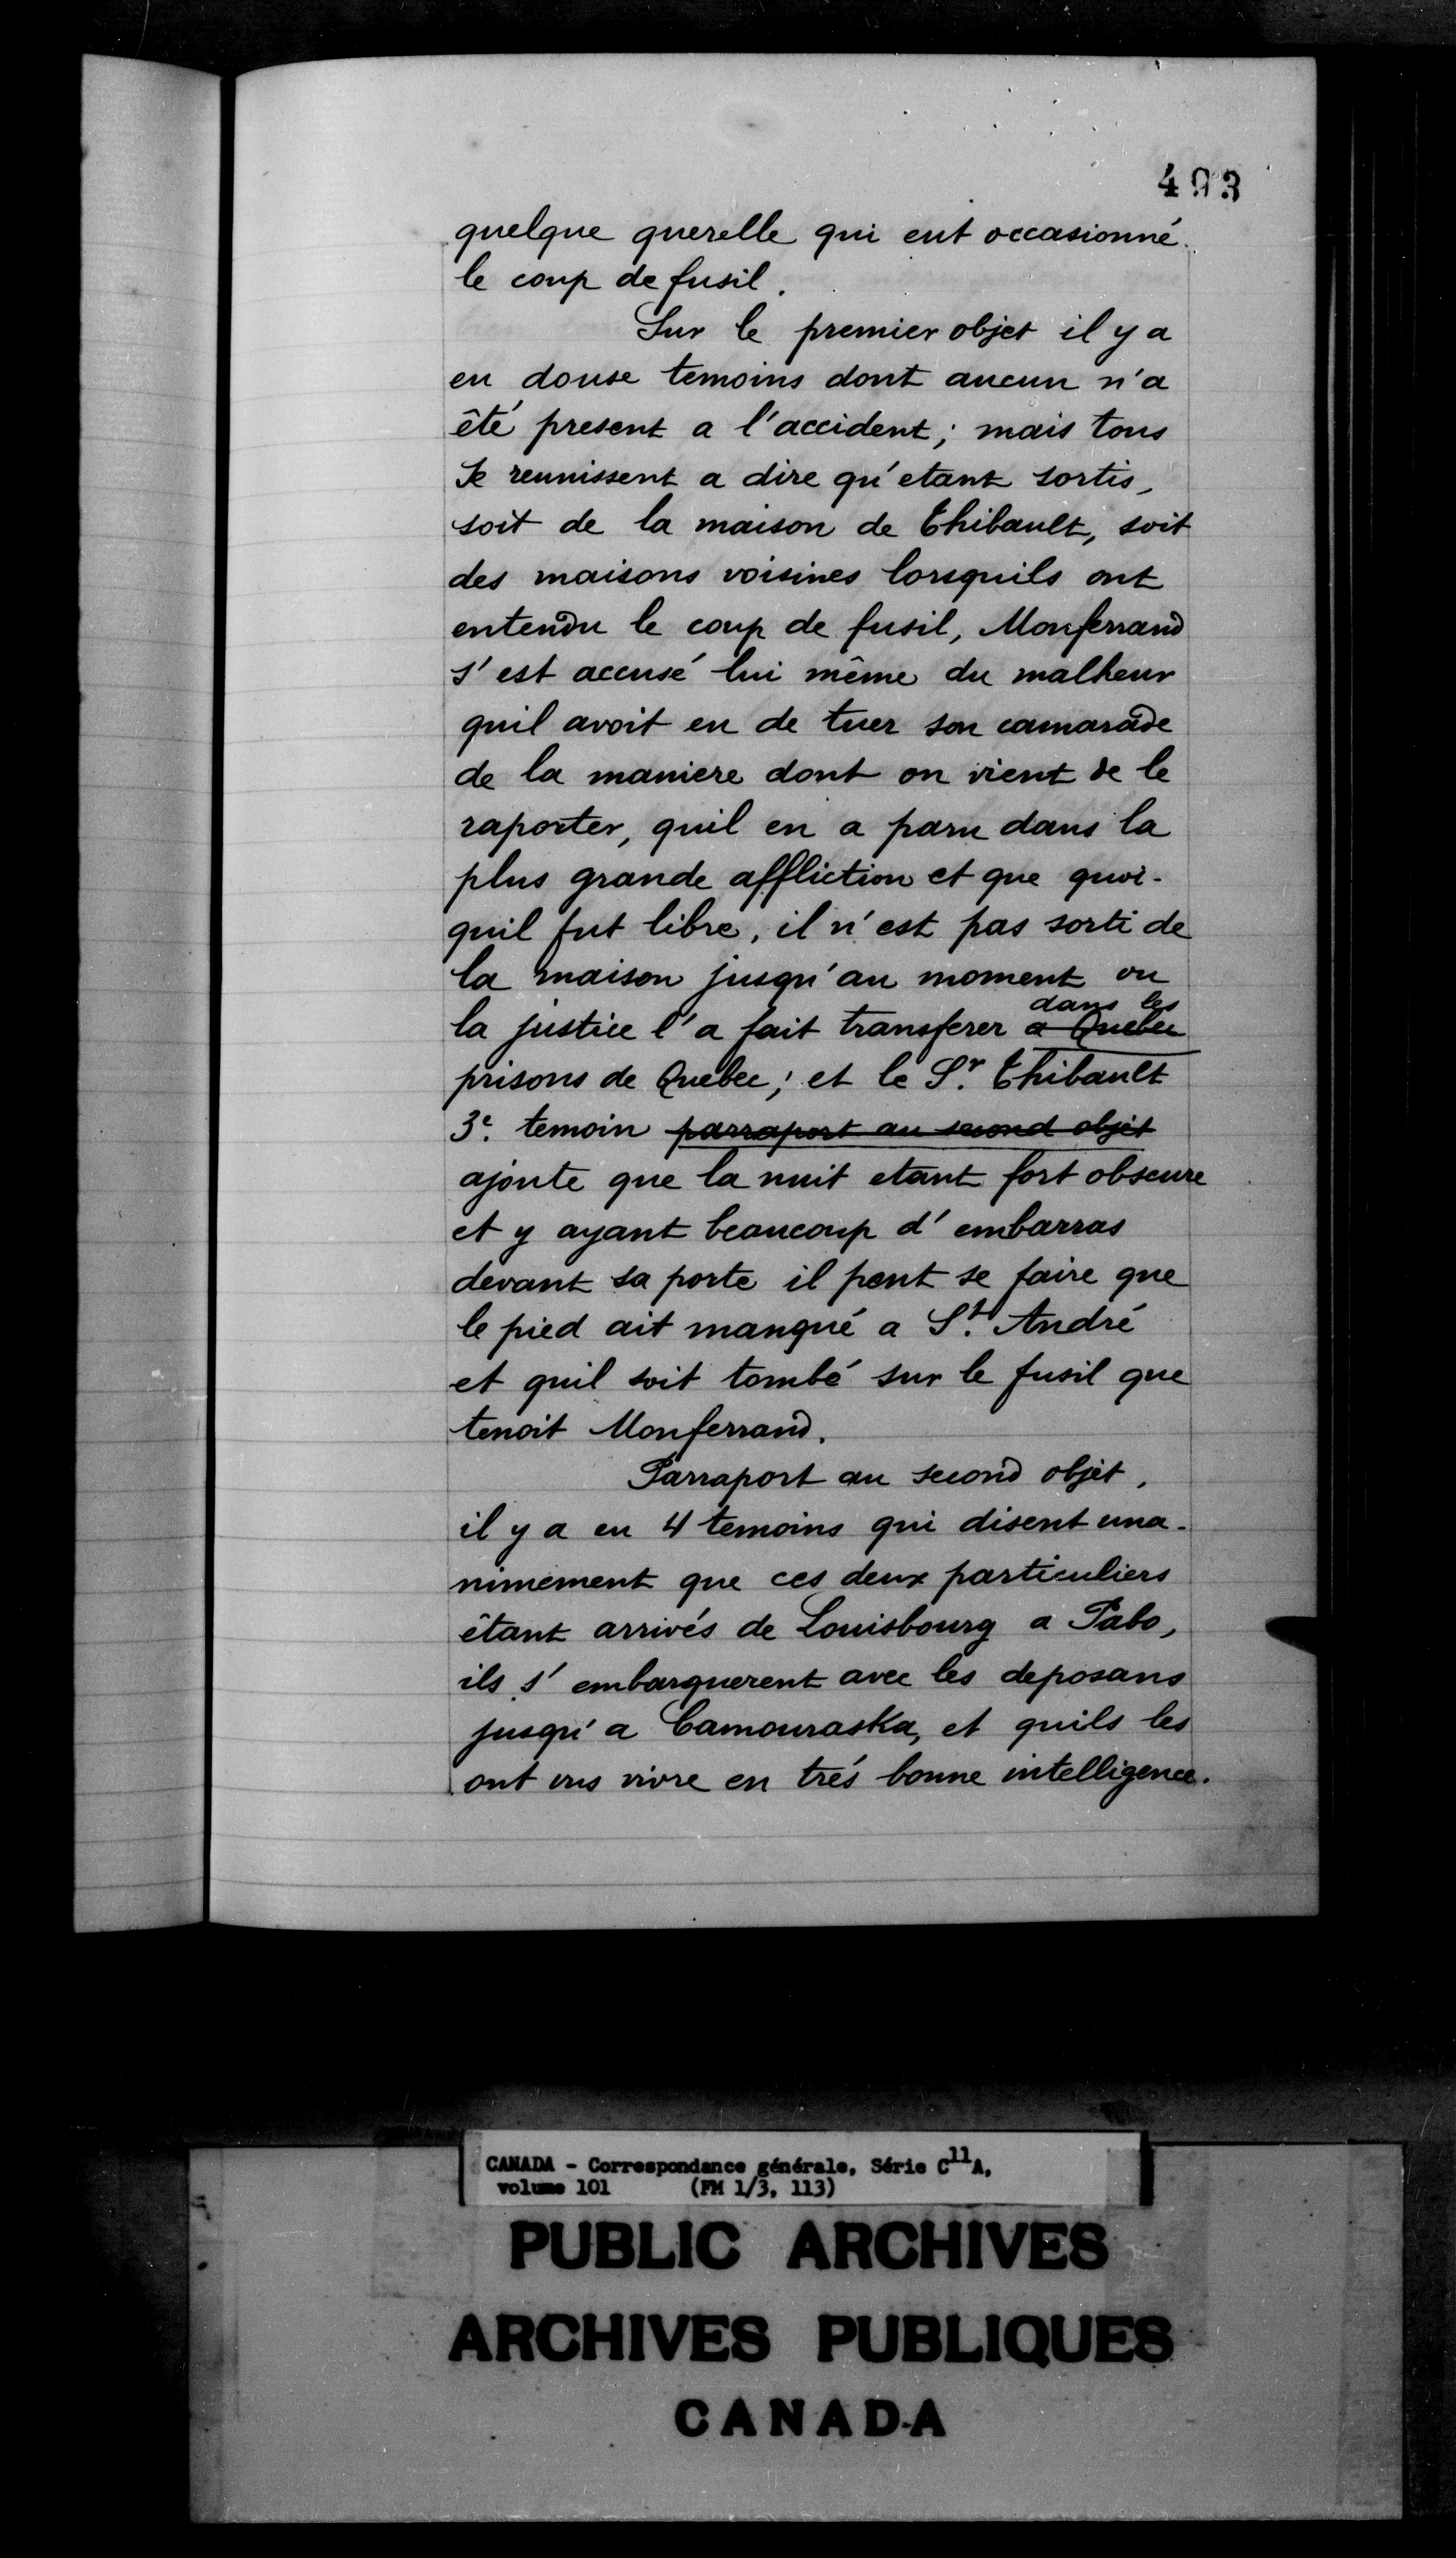 493
quelque querelle qui eut occasionné
le coup de fusil.
Sur le premier objet il y a
eu douse temoins dont aucun n'a
êté present a l'accident; mais tous
se reunissent a dire qu'etant sortis,
soit de la maison de Thibault, soit
des maisons voisines lorsquils ont
entendu le coup de fusil, Monferrand
s'est accusé lui même du malheur
quil avoit eu de tuer son camarade
de la maniere dont on vient de le
raporter, quil en a paru dans la
plus grande affliction et que quoi-
quil fut libre, il n'est pas sorti de
la maison jusqu'au moment ou
dans les
la justice l'a fait transferer a Quebec
prisons de Quebec; et le Sr. Thibault
3e. temoin parraport au second objet
ajoute que la nuit etant fort obscure
et y ayant beaucoup d'embarras
devant sa porte il peut se faire que
le pied ait manqué a St. André
et quil soit tombé sur le fusil que
tenoit Monferrand.
Parraport au second objet,
il y a eu 4 temoins qui disent una-
nimement que ces deux particuliers
êtant arrivés de Louisbourg a Pabo,
ils s'embarquerent avec les deposans
jusqu'a Camouraska, et quils les
ont vus vivre en trés bonne intelligence.
CANADA - Correspondance générale, Série C11A,
volume 101 (FM 1/3, 113)
PUBLIC ARCHIVES
ARCHIVES PUBLIQUES
CANADA